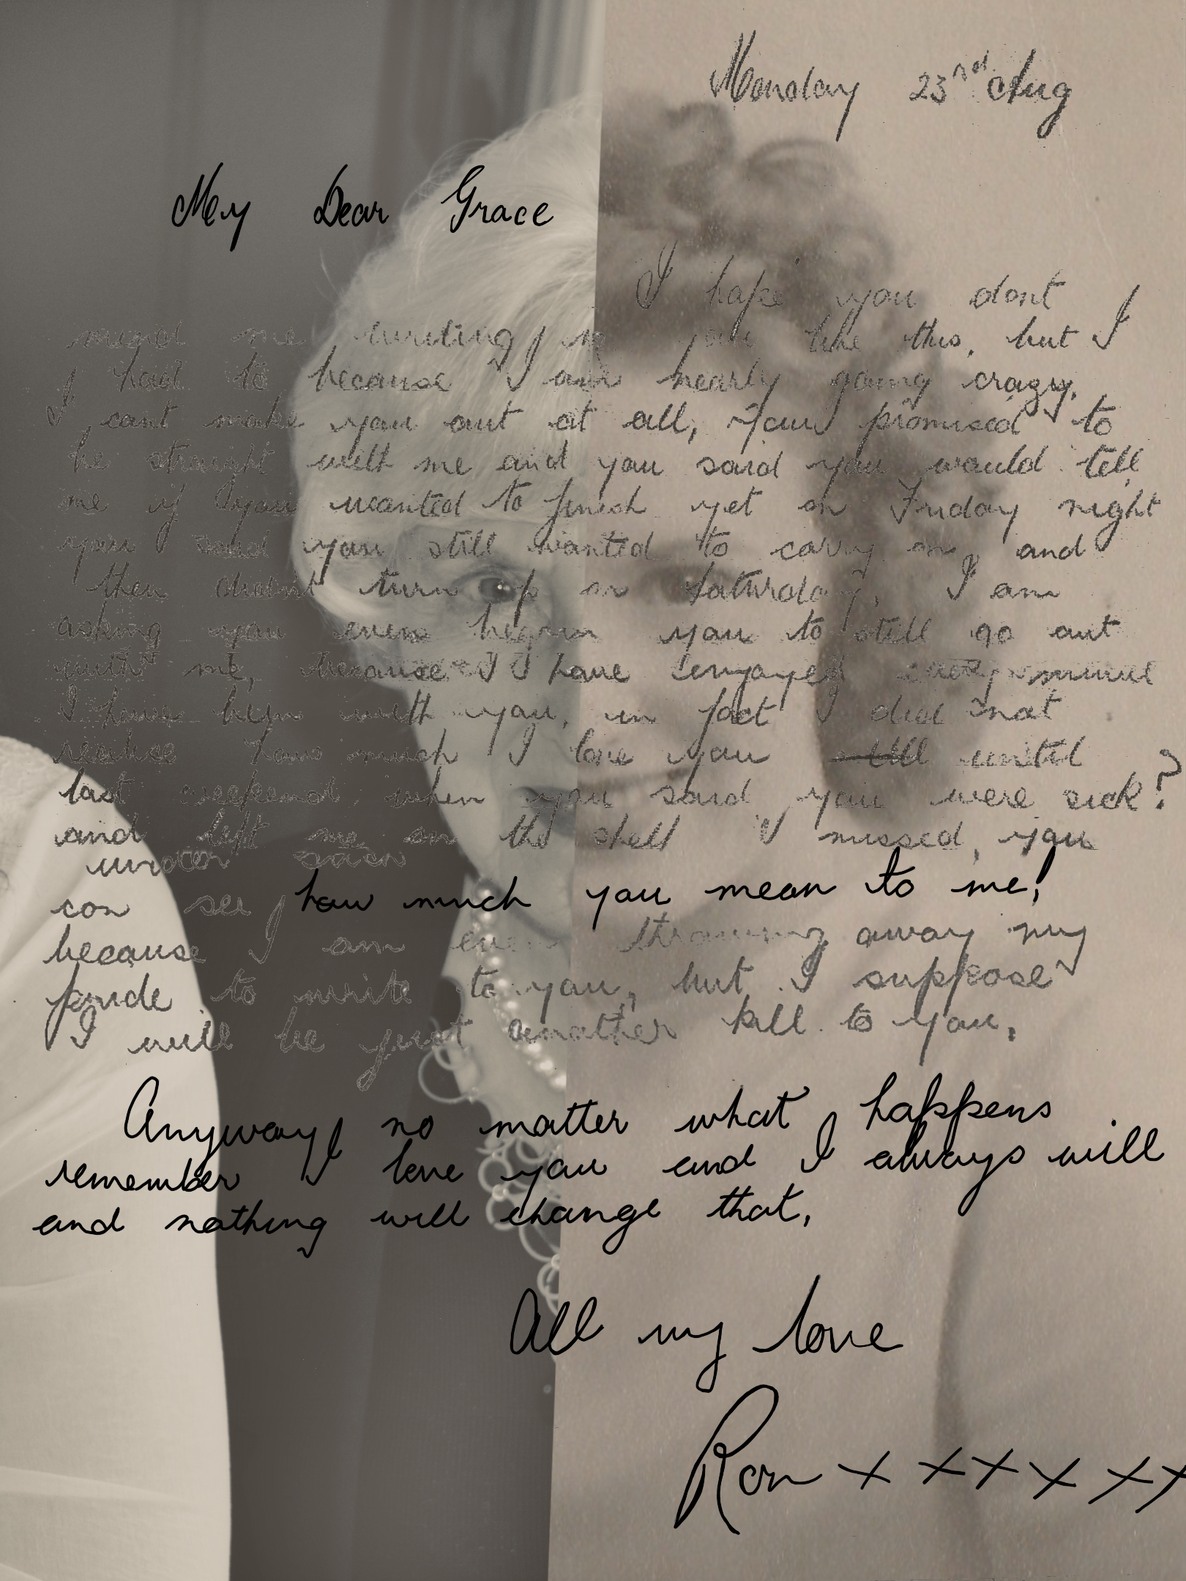 Monday 23rd Aug
My Dear Grace
I hope you dont
mind me writing to you like this, but I
had to because I am nearly going crazy.
I cant make you out at all, You promised to
be straight with me and you said you would tell
me if you wanted to finish yet on Friday night
you said you still wanted to carry on, and
then didnt turn up on Saturday, I am
asking you even beggin you to still go out
with me, because I have enjoyed every minute
I have been with you, in fact I did not
realise how much I love you until
last weekend when you said you were sick?
and left me on the shelf I missed you
con see how much you mean to me!
because I am even throwing away my
pride to write to you, but I suppose
I will be just another kill to you.
Anyway no matter what happens
remember I love you and I always will
and nothing will change that,
All my love
Ron x x x x x x